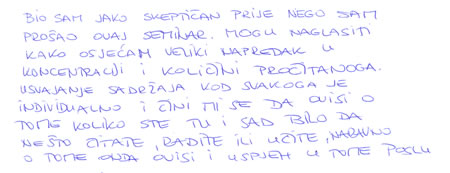 BIO SAM JAKO SKEPTIČAN PRIJE NEGO SAM
PROŠAO OVAJ SEMINAR. MOGU NAGLASITI
KAKO OSJEĆAM VELIKI NAPREDAK U
KONCENTRACIJI I KOLIČINI PROČITANOGA.
USVAJANJE SADRŽAJA KOD SVAKOGA JE
INDIVIDUALNO I ČINI MI SE DA OVISI O
TOME KOLIKO STE TU I SAD BILO DA
NEŠTO ČITATE, RADITE ILI UČITE, NARAVNO
O TOME ONDA OVISI I USPJEH U TOME POSLU